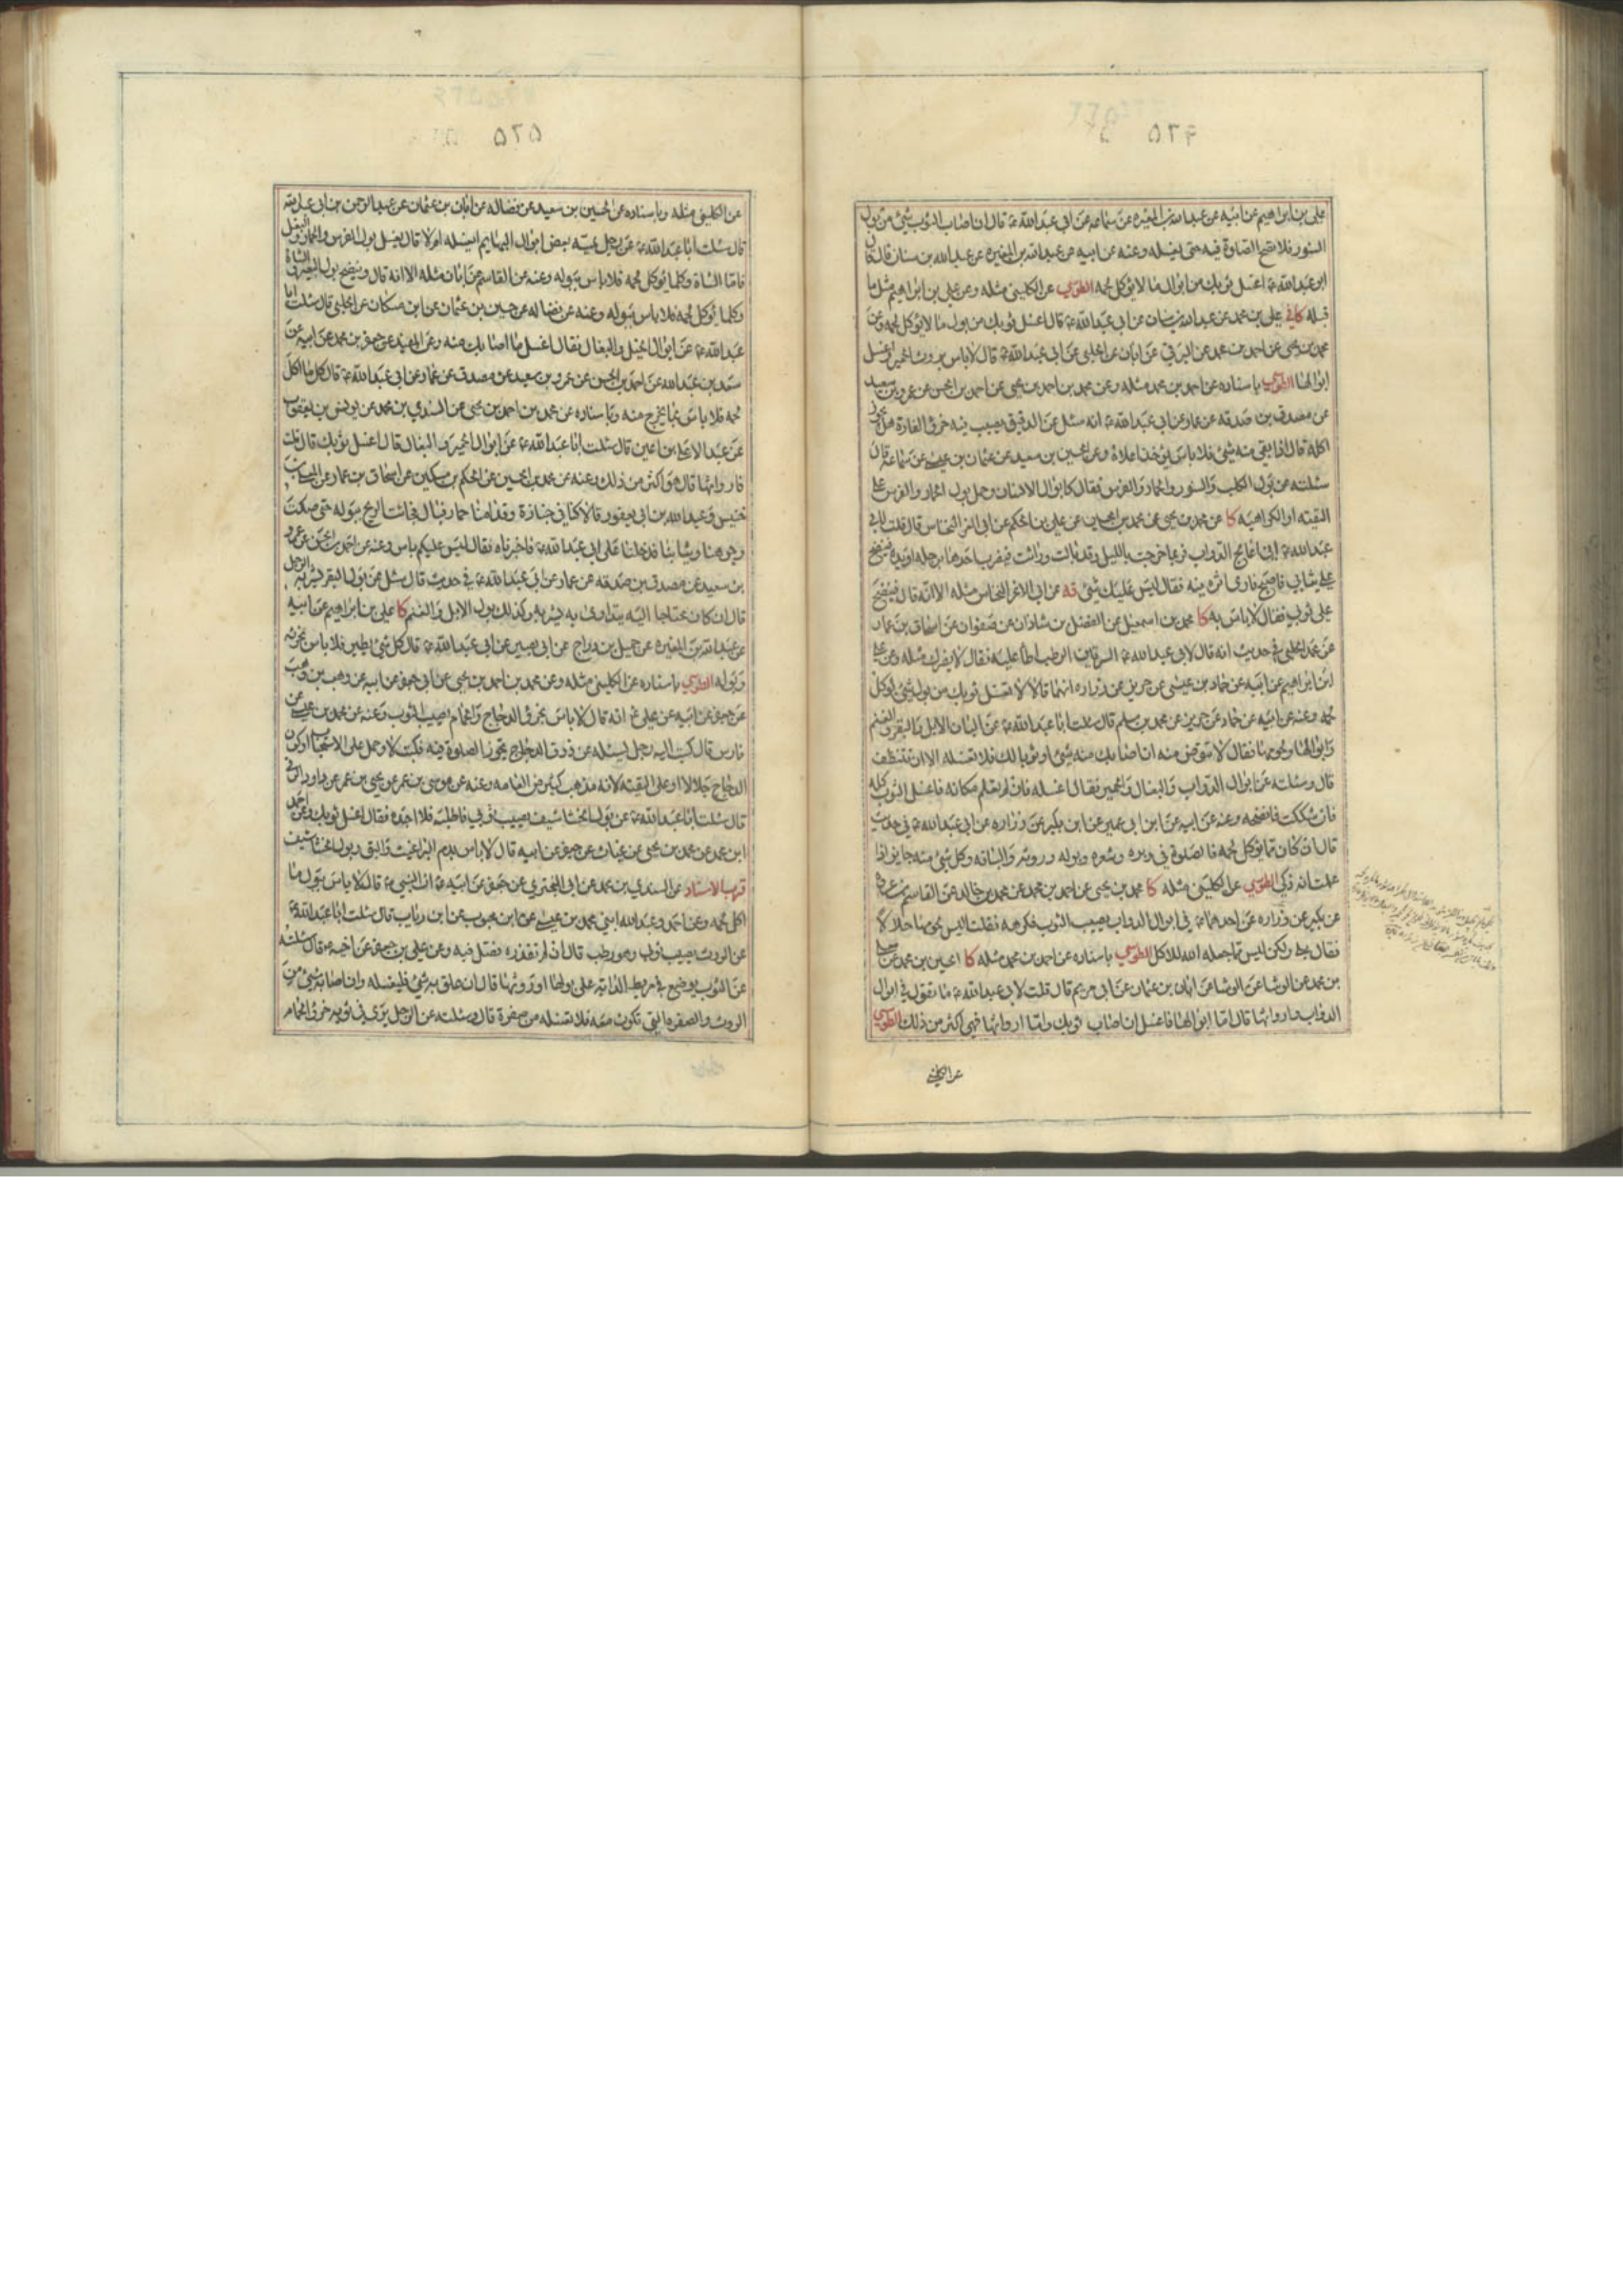 علی بن ابراهیم عن ابیه عن عبد الله بن المغیره عن سماعه عن ابی عبد الله ع قال ان اصاب الثوب شیئ من بول
السنور فلا تصح الصلوة فیه حتی تغسله وعنه عن ابیه عن عبد الله بن المغیره عن عبد الله بن سنان قال قال
ابو عبد الله ع اغسل ثوبك من ابوال ما لا یؤکل لحمه الطوسی عن الکلینی مثله وعن علی بن ابراهیم مثل ما
قبله کافی علی بن محمد عن عبد الله بن سنان عن ابی عبد الله ع قال اغسل ثوبك من بول ما لا یؤکل لحمه وعن
محمد بن یحیی عن احمد بن محمد عن البرقی عن ابان عن الحلبی عن ابی عبد الله ع قال لا باس بروث الحمیر واغسل
ابوالها الطوسی باسناده عن احمد بن محمد مثله وعن محمد بن احمد بن یحیی عن احمد بن الحسن عن عمرو بن سعید
عن مصدق بن صدقه عن عمار عن ابی عبد الله ع انه سئل عن الدقیق یصیب فیه خرؤ الفارة هل یجوز
اکله قال اذا بقی منه شیئ فلا باس یؤخذ اعلاه وعن الحسین بن سعید عن عثمان بن عیسی عن سماعه قال
سئلته عن بول الکلب والسنور والحمار والفرس فقال کابوال الانسان وحمل بول الحمار والفرس علی
التقیته او الکراهیه کا عن محمد بن یحیی عن محمد بن الحسین عن علی بن الحکم عن ابی الاغر النحاس قال قلت لابی
عبد الله ع انی اعالج الدواب فربما خرجت باللیل وقد بالت وراثت فیضرب احدها برجله او یده فینضح
علی ثیابی فاصبح فاری اثره فیه فقال لیس علیك شیئ قه عن ابی الاغر النحاس مثله الا انه قال فینضح
علی ثوبی فقال لا باس به کا محمد بن اسمعیل عن الفضل بن شاذان عن صفوان عن اسحاق بن عمار
عن الحلبی فی حدیث انه قال لابی عبد الله ع السرقین الرطب اطأ علیه فقال لا یضرك مثله وعن علی
ابن ابراهیم عن ابیه عن حماد بن عیسی عن حریز عن زراره انهما قالا لا تغسل ثوبك من بول شیئ یؤکل
لحمه وعنه عن ابیه عن حماد عن حریز عن محمد بن مسلم قال سئلت ابا عبد الله ع عن البان الابل والبقر والغنم
وابوالها ولحومها فقال لا توضئ منه ان اصابك منه شیئ او ثوبا لك فلا تغسله الا ان تتنظف
قال وسئلته عن ابوال الدواب والبغال والحمیر فقال اغسله فان لم تعلم مکانه فاغسل الثوب کله
فان شککت فانضحه وعنه عن ابیه عن ابن ابی عمیر عن ابن بکیر عن زراره عن ابی عبد الله ع فی حدیث
قال ان کان مما یؤکل لحمه فالصلوة فی وبره وشعره وبوله وروثه والبانه وکل شیئ منه جایز اذا
علمت انه ذکی الطوسی عن الکلینی مثله کا محمد بن یحیی عن احمد بن محمد عن محمد بن خالد عن القاسم بن عروه
عن بکیر عن زراره عن احدهما ع فی ابوال الدواب یصیب الثوب فکرهه فقلت الیس لحومها حلالا
فقال بلی ولکن لیس مما جعله الله للاکل الطوسی باسناده عن احمد بن محمد مثله کا الحسین بن محمد عن معلی
بن محمد عن الوشا عن ابان بن عثمان عن ابی مریم قال قلت لابی عبد الله ع ما تقول فی ابوال
الدواب واروائها قال اما ابوالها فاغسل ان اصاب ثوبك واما اروائها فهی اکثر من ذلك الطوسی
عن الکلینی
٥٢٥
عن الکلینی مثله وباسناده عن الحسین بن سعید عن فضاله عن ابان بن عثمان عن عبد الرحمن بن ابی عبد الله
قال سئلت ابا عبد الله ع عن رجل یمسه بعض ابوال البهایم ایغسله ام لا قال یغسل بول الفرس والحمار والبغل
فاما الشاة وکلما یؤکل لحمه فلا باس ببوله وعنه عن القاسم عن ابان مثله الا انه قال وینضح بول البعیر والشاة
وکلما یؤکل لحمه فلا باس ببوله وعنه عن فضاله عن حسین بن عثمان عن ابن مسکان عن الحلبی قال سئلت ابا
عبد الله ع عن ابوال الخیل والبغال فقال اغسل ما اصابك منه وعن المفید عن جعفر بن محمد عن ابیه عن
سعد بن عبد الله عن احمد بن الحسن عن عمرو بن سعید عن مصدق عن عمار عن ابی عبد الله ع قال کل ما اکل
لحمه فلا باس بما یخرج منه وباسناده عن محمد بن احمد بن یحیی عن السندی بن محمد عن یونس بن یعقوب
عن عبد الاعلی بن اعین قال سئلت ابا عبد الله ع عن ابوال الحمیر والبغال قال اغسل ثوبك قال قلت
فاروائها قال هو اکثر من ذلك وعنه عن محمد بن الحسین عن الحکم بن مسکین عن اسحاق بن عمار عن المعلی بن
خنیس وعبد الله بن ابی یعفور قالا کنا فی جنازة وقدامنا حمار فبال فجائت الریح ببوله حتی صکت
وجوهنا وثیابنا فدخلنا علی ابی عبد الله ع فاخبرناه فقال لیس علیکم باس وعنه عن احمد بن الحسن عن عمرو
بن سعید عن مصدق بن صدقه عن عمار عن ابی عبد الله ع فی حدیث قال سئل عن بول البقر یشربه الرجل
قال ان کان محتاجا الیه یتداوی به یشربه وکذلك بول الابل والغنم کا علی بن ابراهیم عن ابیه
عن عبد الله بن المغیره عن جمیل بن دراج عن ابی بصیر عن ابی عبد الله ع قال کل شیئ یطیر فلا باس بخرئه
وبوله الطوسی باسناده عن الکلینی مثله وعن محمد بن احمد بن یحیی عن ابی جعفر عن ابیه عن وهب بن وهب
عن جعفر عن ابیه عن علی ع انه قال لا باس بخرؤ الدجاج والحمام یصیب الثوب وعنه عن محمد بن عیسی عن
فارس قال کتب الیه رجل یسئله عن ذرق الدجاج یجوز الصلوة فیه فکتب لا وحمل علی الاستحباب او کون
الدجاج جلالا او علی التقیته لانه مذهب کثیر من العامه وعنه عن موسی بن عمر عن یحیی بن عمر عن داود الرقی
قال سئلت ابا عبد الله ع عن بول الخشاشیف یصیب ثوبی فاطلبه فلا اجده فقال اغسل ثوبك وعن احمد
ابن محمد عن محمد بن یحیی عن غیاث عن جعفر عن ابیه قال لا باس بدم البراغیث والبق وبول الخشاشیف
قرب الاسناد عن السندی بن محمد عن ابی البختری عن جعفر عن ابیه ع ان النبی ص قال لا باس ببول ما
اکل لحمه وعن احمد وعبد الله ابنی محمد بن عیسی عن ابن محبوب عن ابن رئاب قال سئلت ابا عبد الله ع
عن الروث یصیب ثوبی وهو رطب قال ان لم تقذره فصل فیه وعن علی بن جعفر عن اخیه ع قال سئلته
عن الثوب یوضع فی مربط الدابة علی بولها او روثها قال ان علق به شیئ فلیغسله وان اصابه شیئ من
الروث والصفره التی تکون معه فلا تغسله من صفرة قال وسئلته عن الرجل یری فی ثوبه خرؤ الحمام